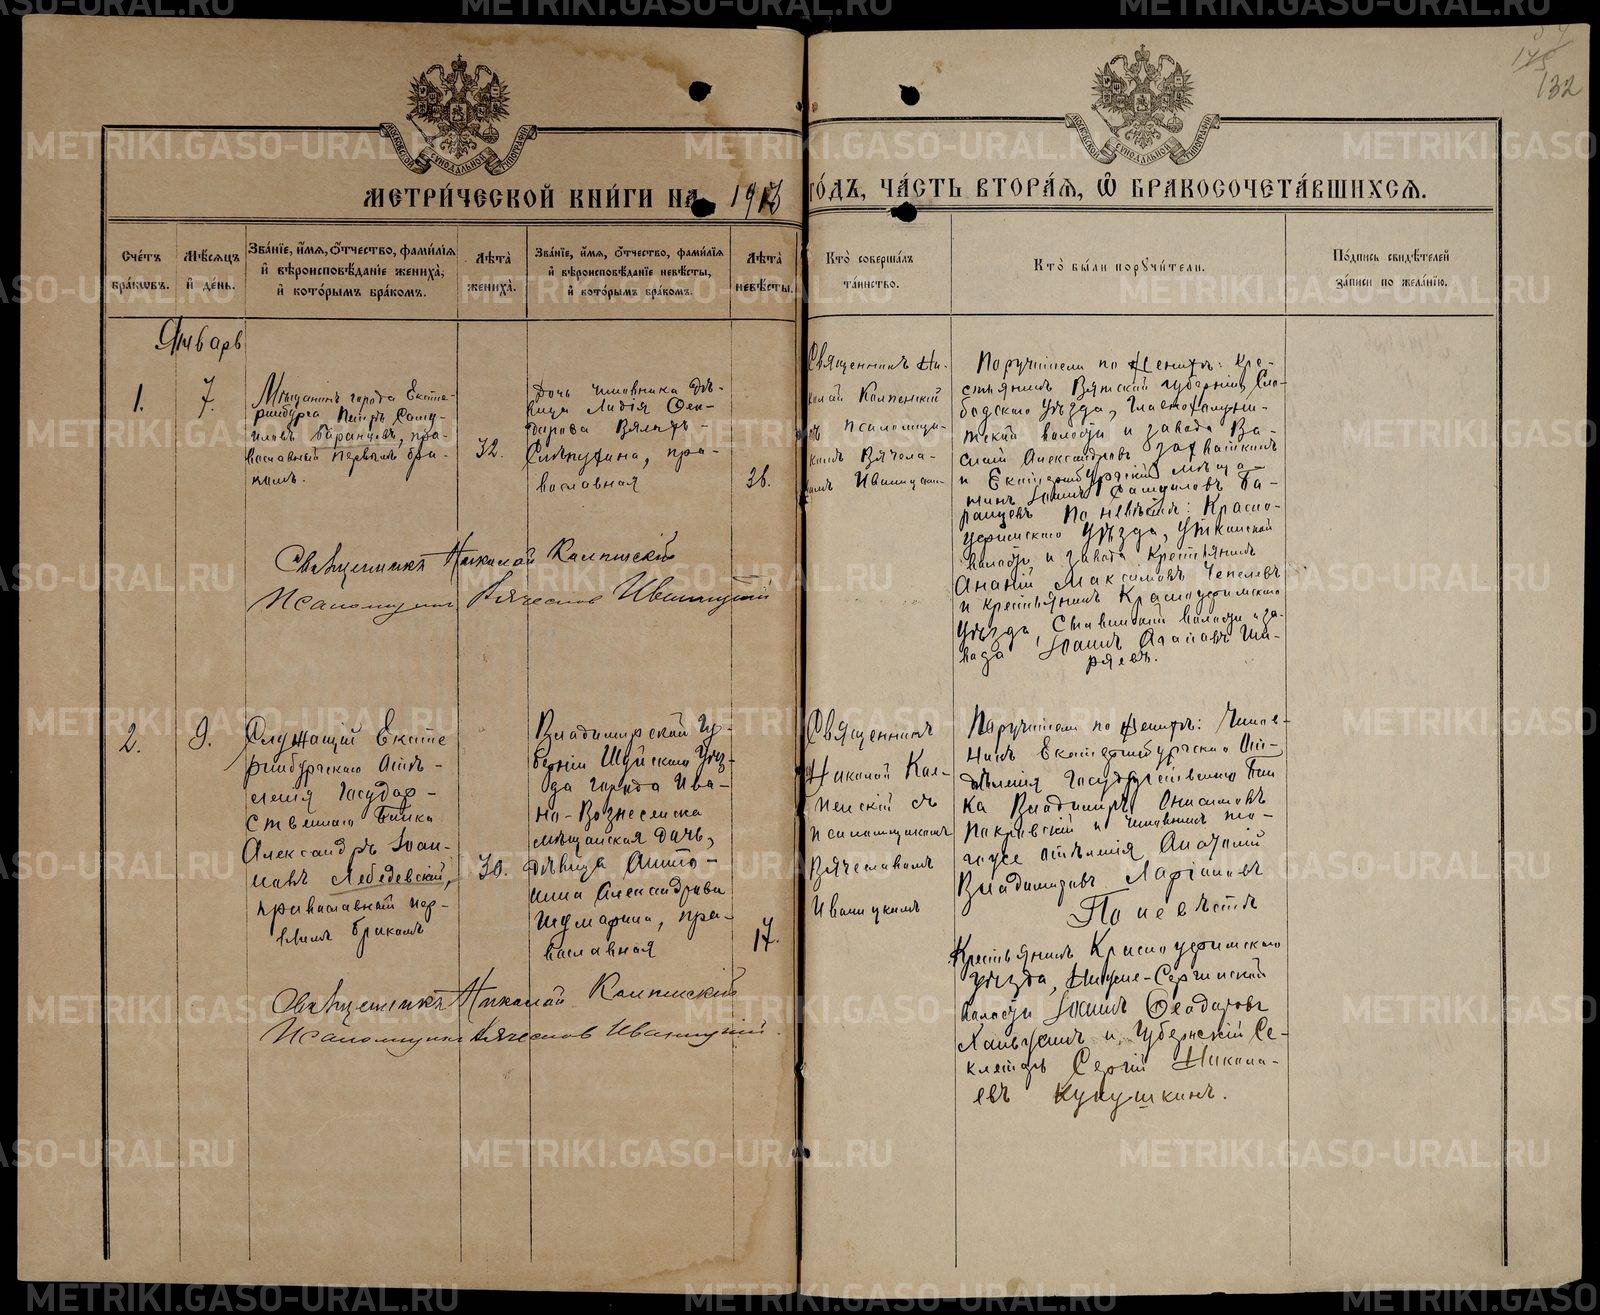 МЕТРИ́ЧЕСКОЙ КНИ́ГИ НА 1913 ГО́ДЪ, ЧА́СТЬ ВТОРА́Я, Ѡ҆ БРАКОСОЧЕТА́ВШИХСЯ.
МОСКОВСКОЙ СѴНОДАЛЬНОЙ ТИПОГРАФІИ
МОСКОВСКОЙ СѴНОДАЛЬНОЙ ТИПОГРАФІИ
132
Сче́тъ бра́кωвъ.
Мѣ́сяцъ и де́нь.
Зва́ніе, и́мя, о́тчество, фами́лія
и вѣроисповѣ́даніе жениха̀;
и кото́рымъ бра́комъ.
Лѣта̀ жениха̀.
Зва́ніе, и́мя, о́тчество, фами́лія
и вѣроисповѣ́даніе невѣ́сты,
и кото́рымъ бра́комъ.
Лѣта̀ невѣ́сты.
Кто̀ соверша́лъ
та́инство.
Кто̀ бы́ли поручи́тели.
По́дпись свидѣ́телей
за́писи по жела́нію.
Январь
1.
7.
Мѣщанинъ города Екате-
ринбурга Петръ Саму-
иловъ Баранцевъ, пра-
вославный первымъ бра-
комъ.
32.
Дочь чиновника дѣ-
вица Лидія Ѳео-
дорова
православная
38.
Священникъ Ни-
колай Калпенскій
съ псаломщи-
комъ Вячесла-
вомъ Иваницким
Поручители по женихѣ: Кре-
стьянинъ Вятской губерніи, Сло-
бодского уѣзда,
волости и завода Ва-
силій Александровъ
и Екатеринбургскій мѣща-
нинъ Іоаннъ Самуиловъ Ба-
ранцевъ По невѣстѣ: Красно-
уфимскаго уѣзда, Уткинской
волости и завода крестьянинъ
Ананій Максимовъ Чепелевъ
и крестьянинъ Красноуфимскаго
уѣзда, волости и за-
вода Іоаннъ Агаповъ Ши-
ряевъ.
Священникъ Николай Калпинскій
Псаломщикъ Вячеслав Иваницкій
2.
9.
Служащій Екате
ринбургскаго Отдѣ-
ленія Государ-
ственнаго Банка
Александръ Іоан-
новъ Лебедевскій,
православный пер-
вымъ бракомъ
30.
Владимирской гу-
берніи Шуйскаго уѣз-
да города Ива-
но-Вознесенска
мѣщанская дочь,
дѣвица Анто-
нина Александрова
Шумарина, пра-
вославная
17.
Священникъ
Николай Кал-
пенскій съ
псаломщикомъ
Вячеславомъ
Иваницкимъ
Поручители по женихѣ: Чинов-
никъ Екатеринбургскаго От-
дѣленія Государственнаго Бан
ка Владимиръ Онисимовъ
Покровскій и чиновникъ то-
го же отдѣленія Анатолій
Владимировъ Ларіоновъ
По невѣстѣ
Крестьянинъ Красноуфимскаго
уѣзда, Нижне-Сергинской
волости Іоаннъ Ѳеодоровъ
и Губернскій Се-
кретарь Сергій Никола-
евъ Кукушкинъ.
Священникъ Николай Калпинскій
Псаломщикъ Вячеслав Иваницкій.
METRIKI.GASO-URAL.RU